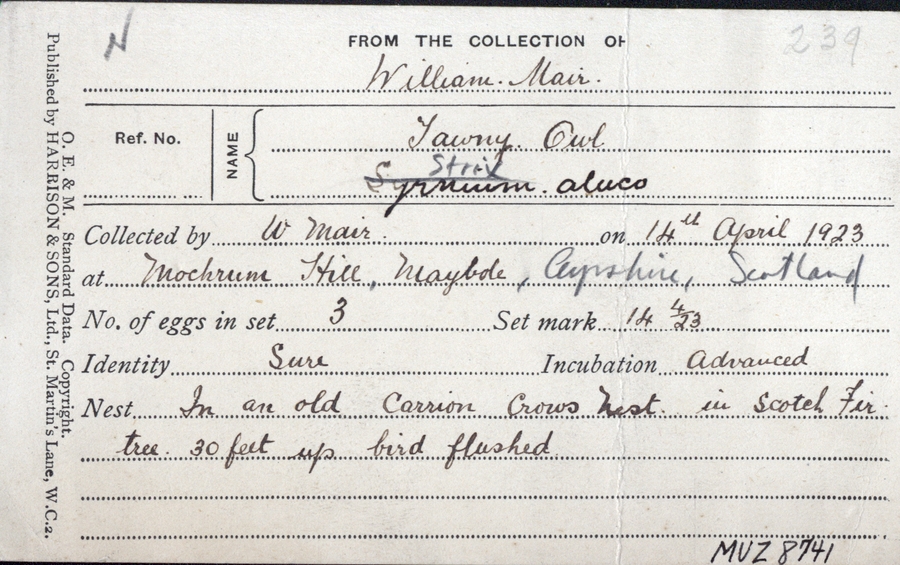 N
239
FROM THE COLLECTION OF
William Mair.
Ref. No.
NAME
Tawny Owl
Strix
Syrnium aluco
Collected by W Mair. on 14th April 1923
at Mochrum Hill, Maybole, Ayrshire, Scotland
No. of eggs in set 3 Set mark 14 4/23
Identity Sure Incubation Advanced
Nest In an old Carrion Crows Nest in Scotch Fir
tree. 30 feet up bird flushed
MUZ 8741
O. E. & M. Standard Data. Copyright.
Published by HARRISON & SONS, Ltd., St. Martin's Lane, W.C.2.